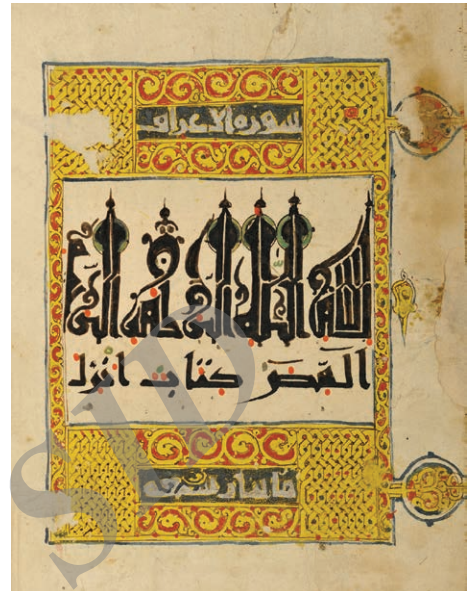 سوره الاعراف
بسم الله الرحمن الرحيم
المص كتاب انزل
SID